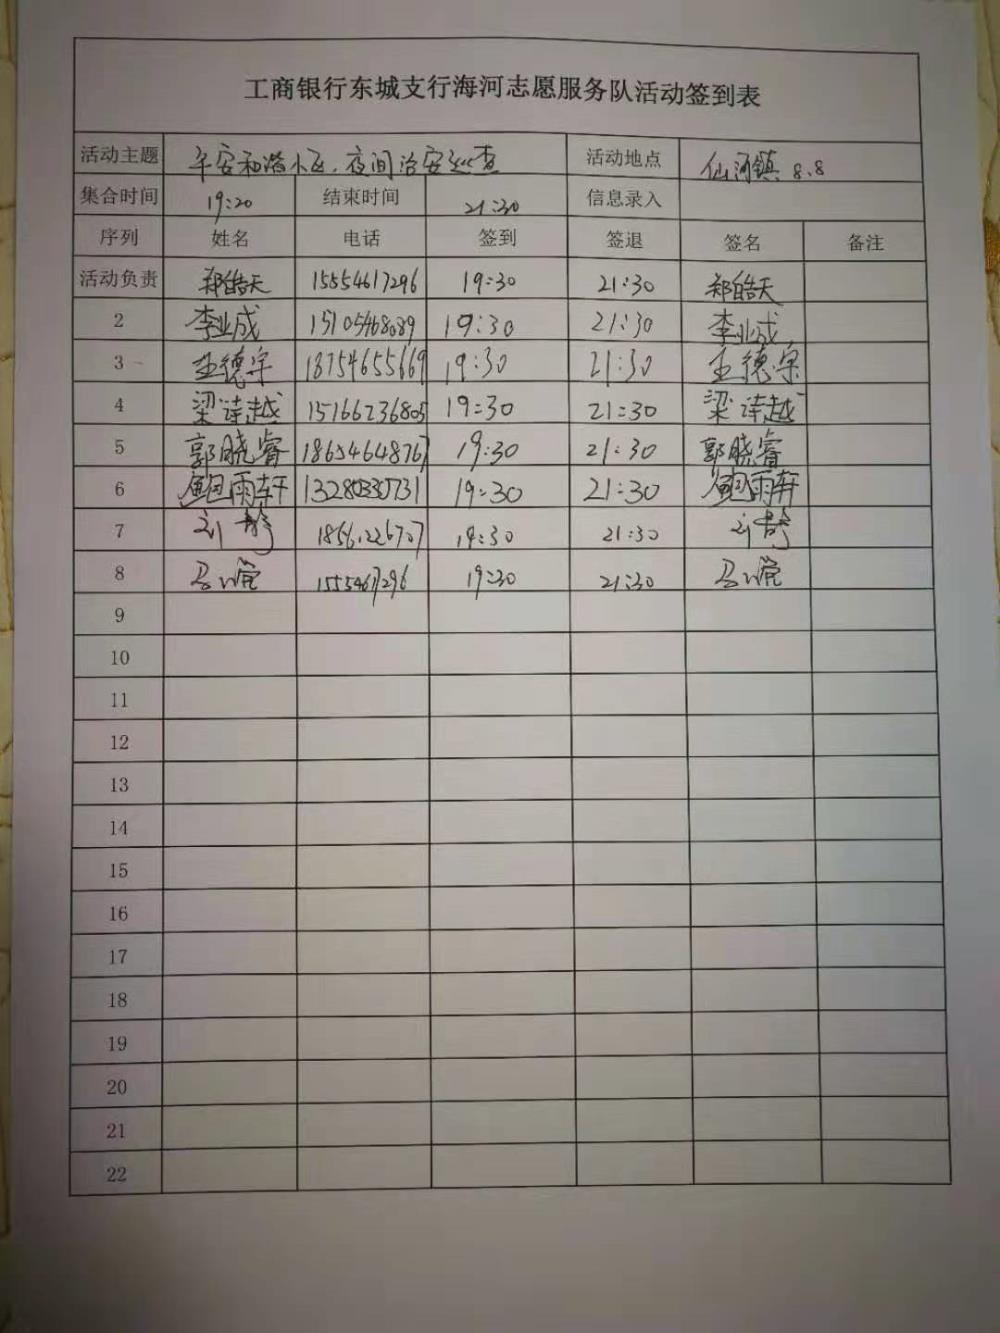 工商银行东城支行海河志愿服务队活动签到表
活动主题 平安和谐小区、夜间治安巡查 活动地点 仙河镇 8.8
集合时间 19:20 结束时间 21:30 信息录入
序列 姓名 电话 签到 签退 签名 备注
活动负责 郑皓天 15554617296 19:30 21:30 郑皓天
2 李业成 15105468089 19:30 21:30 李业成
3 王德宇 18754655669 19:30 21:30 王德宇
4 梁诗越 15166236805 19:30 21:30 梁诗越
5 郭晓睿 18654648767 19:30 21:30 郭晓睿
6 鲍雨轩 13280330731 19:30 21:30 鲍雨轩
7 刘静 18561226707 19:30 21:30 刘静
8 1555467296 19:30 21:30
9
10
11
12
13
14
15
16
17
18
19
20
21
22